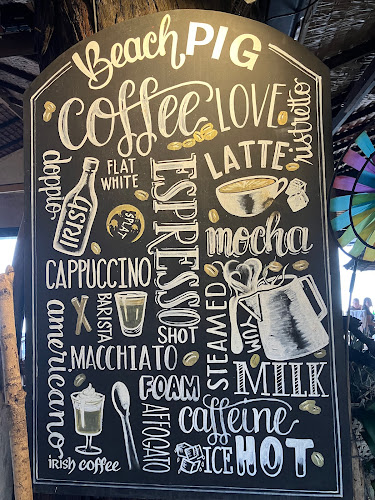 Beach PIG
Coffee LOVE
doppio
FLAT
WHITE
IRISH
SPLAT
ESPRESSO
LATTE
ristretto
mocha
CAPPUCCINO
americano
BARISTA
SHOT
STEAMED
YUM
MACCHIATO
FOAM
MILK
AFFOGATO
caffeine
ICE HOT
IRISH COFFEE